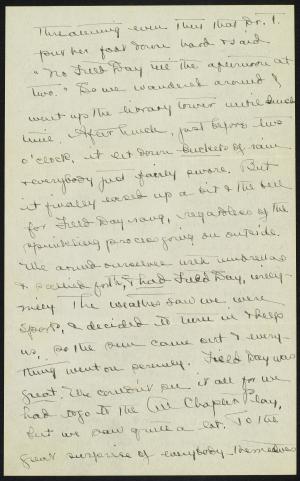 threatening even then that Dr. T.
put her foot down hard & said
"No Field Day till the afternoon at
two." So we wandered around &
went up the library tower until lunch
time. After lunch, just before two
o'clock, it let down buckets of rain
& everybody just fairly swore. But
it finally eased up a bit & the bell
for Field Day rang, regardless of the
sprinkling process going on outside.
We armed ourselves with umbrellas
& sallied forth, & had Field Day,
The weather saw we were
sports, & decided to turn in & help
us, so the sun came out & every-
thing went on serenely. Field Day was
great. We couldn't see it all for we
had to go to the Chapter Play,
but we saw quite a lot. To the
great surprise of everybody themselves